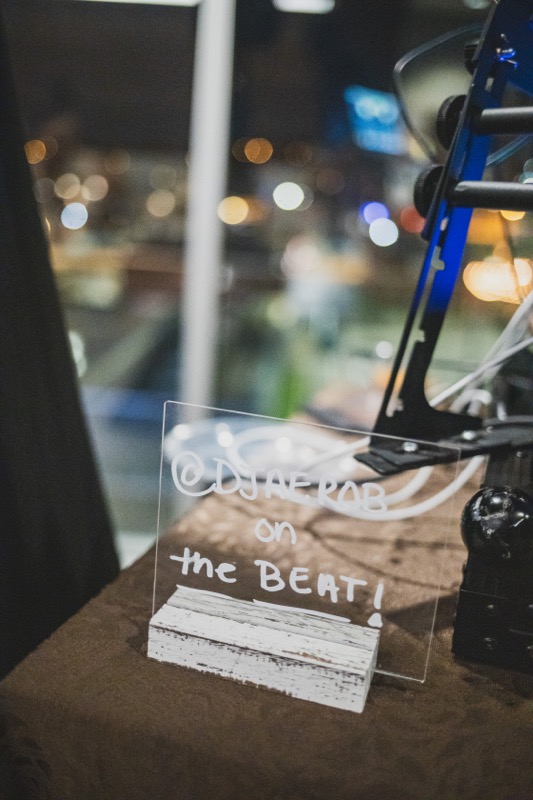 @DJAERAB
on
the BEAT!